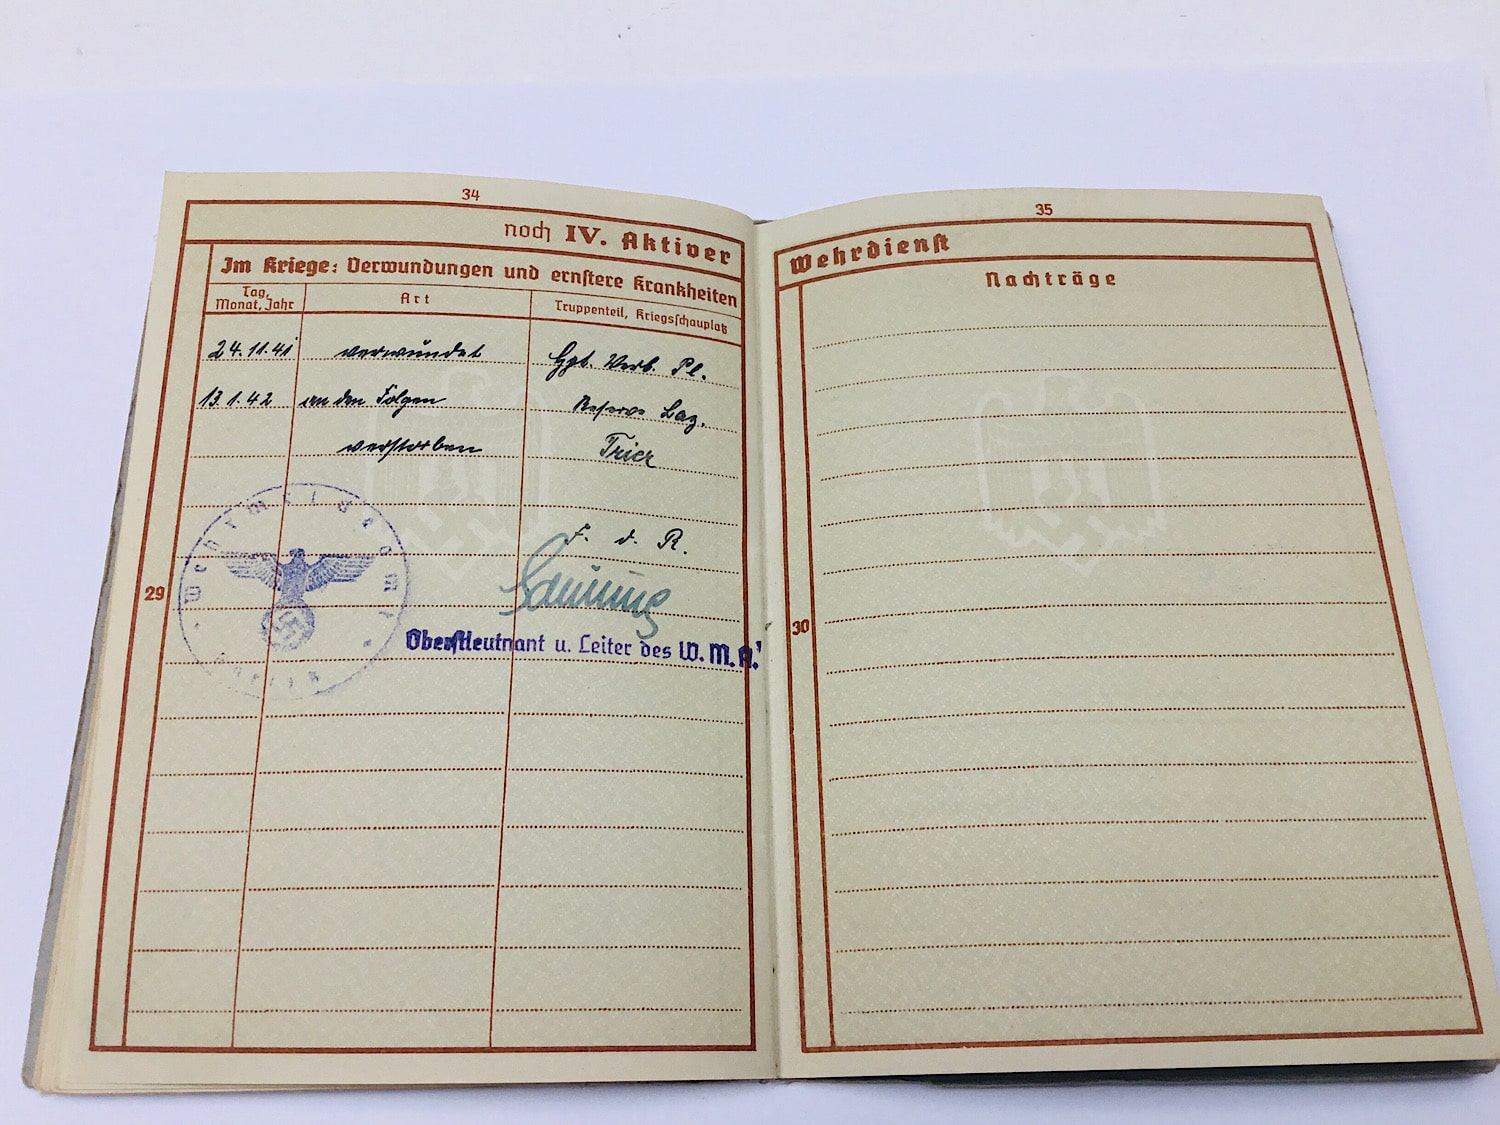 34
noch IV. Aktiver
Im Kriege: Verwundungen und ernstere Krankheiten
Tag, Monat, Jahr
Art
Truppenteil, Kriegsschauplatz
24.11.41 verwundet Hpt. Verb. Pl.
13.1.42 an den Folgen Reserve Laz.
verstorben Trier
F. d. R.
29
Wehrmeldeamt
Oberstleutnant u. Leiter des W. M. A.
35
Wehrdienst
Nachträge
30